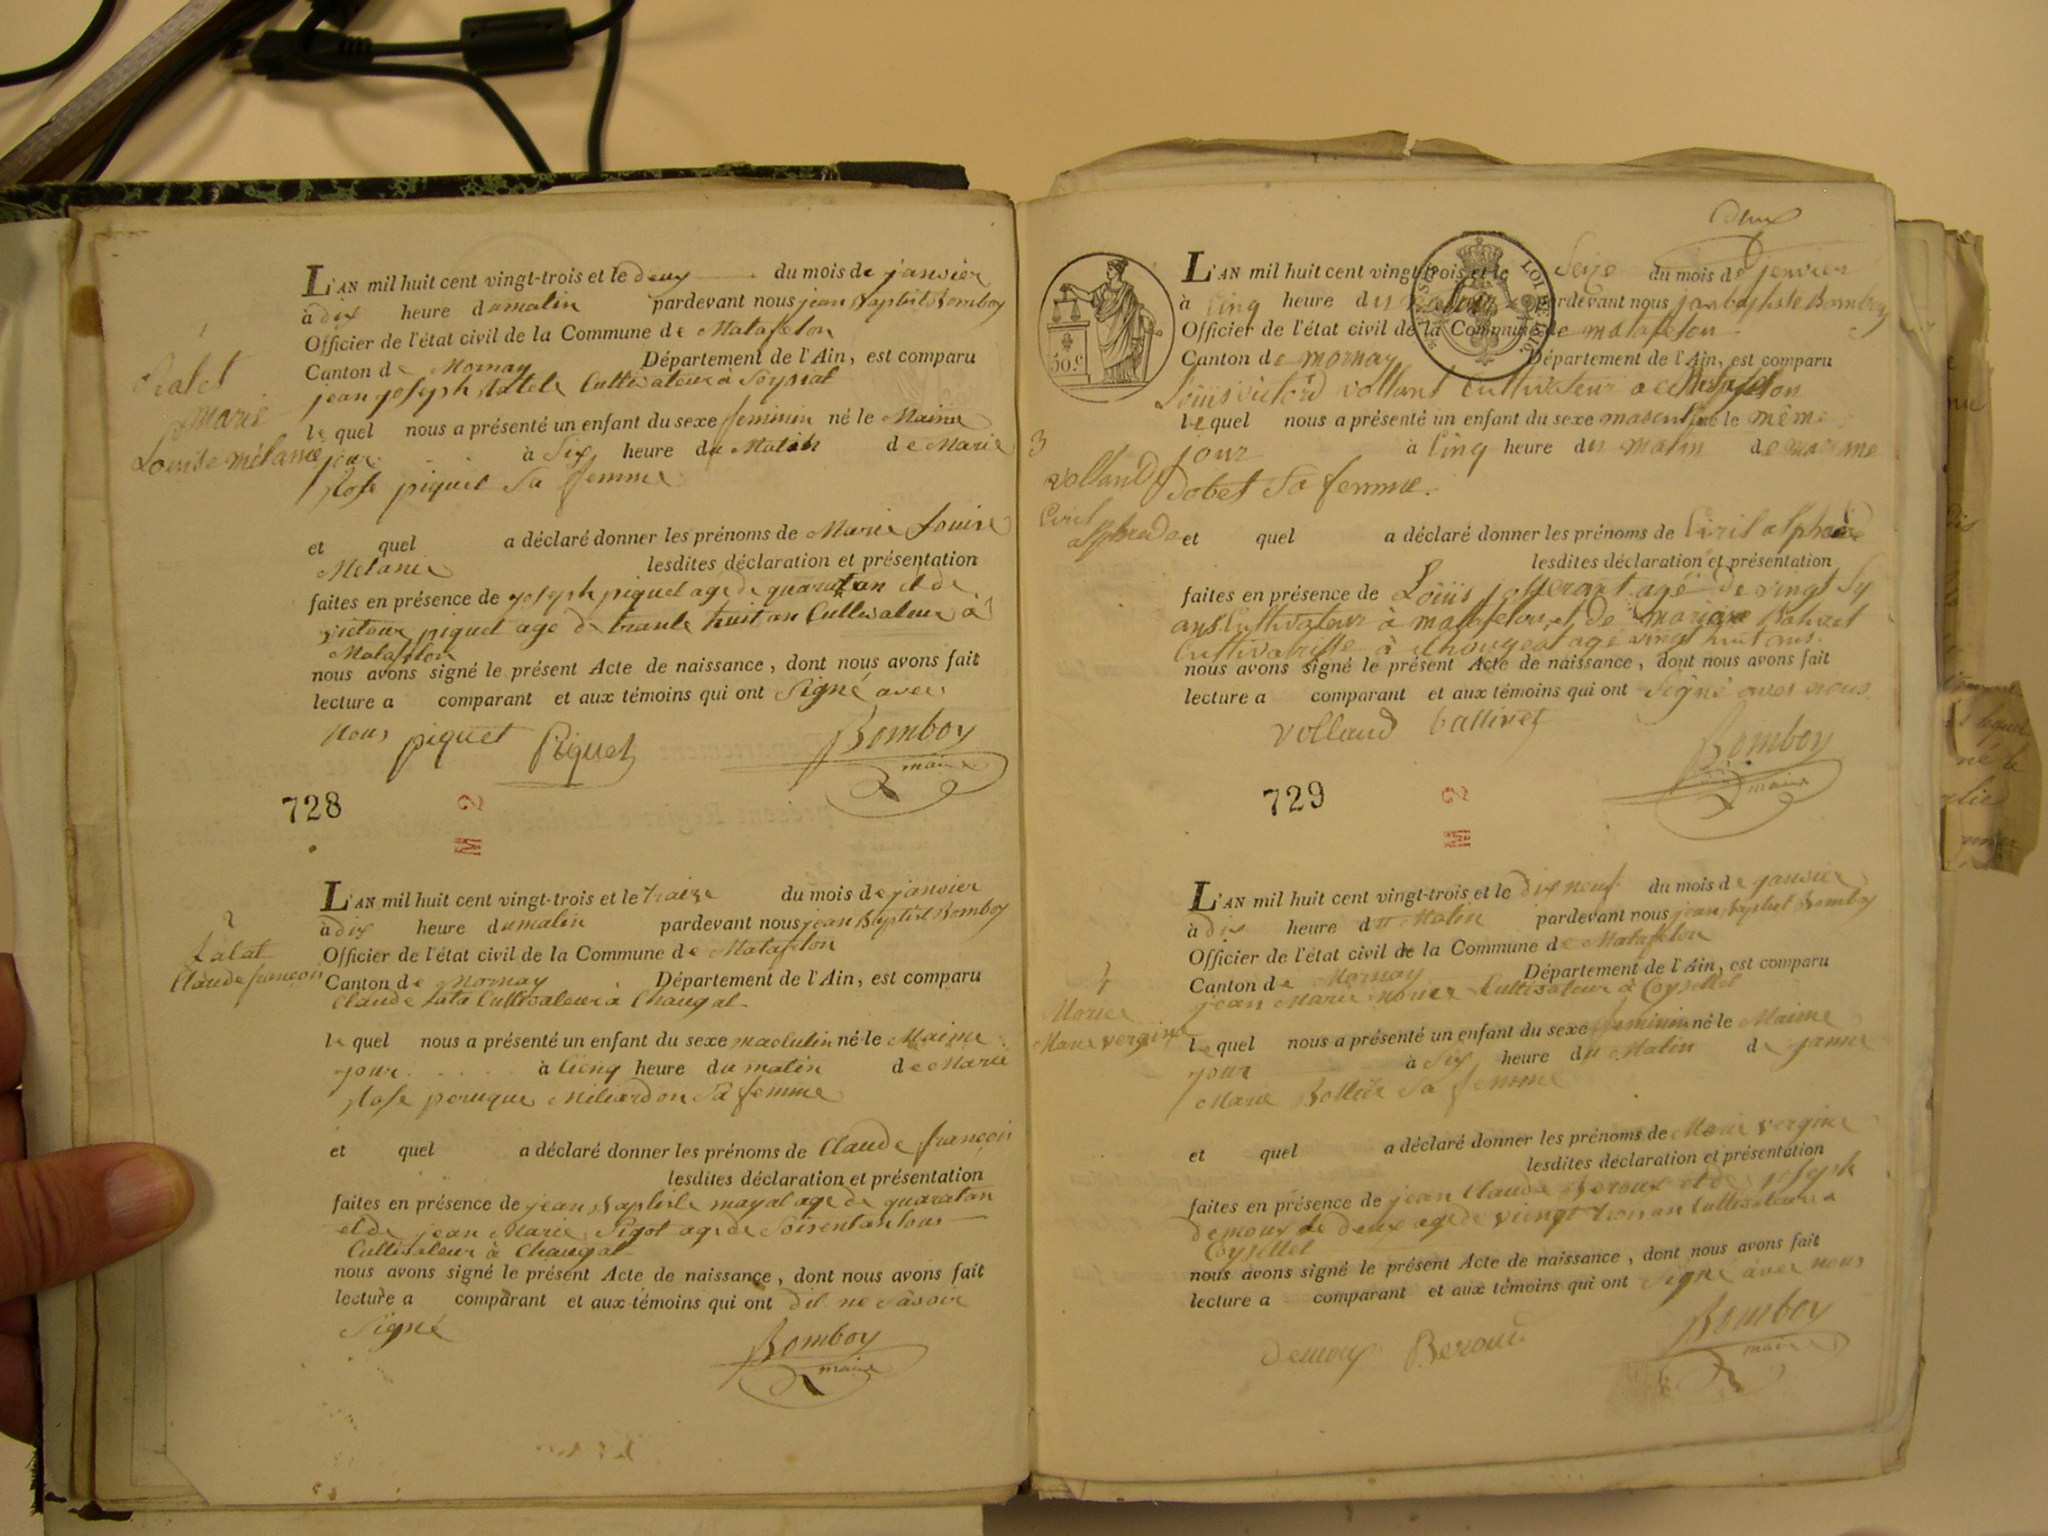 1
marie
Louise mélanie
L'AN mil huit cent vingt-trois et le deux du mois de janvier
à dix heure du matin pardevant nous jean Baptist Bomboy
Officier de l'état civil de la Commune de Matafelon
Canton de Mornay Département de l'Ain, est comparu
jean joseph Cultivateur à
le quel nous a présenté un enfant du sexe feminin né le Maime
jour à Six heure du Matin de Marie
Rose piquet Sa femme
et quel a déclaré donner les prénoms de Marie Louise
Melanie lesdites déclaration et présentation
faites en présence de joseph piquet age de quarat an et de
victour piquet age de trante huit an Cultivateur à
Matafelon
nous avons signé le présent Acte de naissance, dont nous avons fait
lecture a comparant et aux témoins qui ont Signé avec
Nous piquet Piquet Bomboy
maire
728
M 2
2
Lalat
Claude françois
L'AN mil huit cent vingt-trois et le traize du mois de janvier
à dix heure du matin pardevant nous jean Baptist Bomboy
Officier de l'état civil de la Commune de Matafelon
Canton de Mornay Département de l'Ain, est comparu
Claude Cultivateur à Chaugat
le quel nous a présenté un enfant du sexe masculin né le Maime
jour à cienq heure du matin de Marie
Rose peruque Sa femme
et quel a déclaré donner les prénoms de Claude françois
lesdites déclaration et présentation
faites en présence de jean Baptiste mayat age de quaratan
et de jean Marie Pigot age de Soisentan tous
Cultivateur à Chaugat
nous avons signé le présent Acte de naissance, dont nous avons fait
lecture a comparant et aux témoins qui ont dit ne Savoir
Signé
Bomboy
maire
deux
50 c.
LOI DE 1816.
L'AN mil huit cent vingt-trois et le Seize du mois de jenvier
à Cinq heure du pardevant nous jan baptiste Bomboy
Officier de l'état civil de la Commune de matafelon
Canton de mornay Département de l'Ain, est comparu
Louis victord volland Cultivateur a
le quel nous a présenté un enfant du sexe masculin né le même
3
volland
Ciril
alphrede
jour à Cinq heure du matin de
Sa femme.
et quel a déclaré donner les prénoms de Ciril alphrede
lesdites déclaration et présentation
faites en présence de Louis agé de vingt
ans Cultivateur à matafelon et de
à agé vingt huit ans.
nous avons signé le présent Acte de naissance, dont nous avons fait
lecture a comparant et aux témoins qui ont Signé avec nous
Volland ballivet
Bomboy
maire
729
M 2
4
Marie vergine
L'AN mil huit cent vingt-trois et le dix neuf du mois de janvier
à dix heure du Matin pardevant nous jean Baptist Bomboy
Officier de l'état civil de la Commune de Matafelon
Canton de Mornay Département de l'Ain, est comparu
jean Marie Cultivateur à Coysellet
le quel nous a présenté un enfant du sexe feminin né le Maime
jour à Six heure du Matin de janne
Marie Sa femme
et quel a déclaré donner les prénoms de Marie vergine
lesdites déclaration et présentation
faites en présence de jean Claude Beroux et de joseph
demoux de deux age de viengt trois an Cultivateur a
Coysellet
nous avons signé le présent Acte de naissance, dont nous avons fait
lecture a comparant et aux témoins qui ont Signé avec nous
demoux Beroud
Bomboy
maire